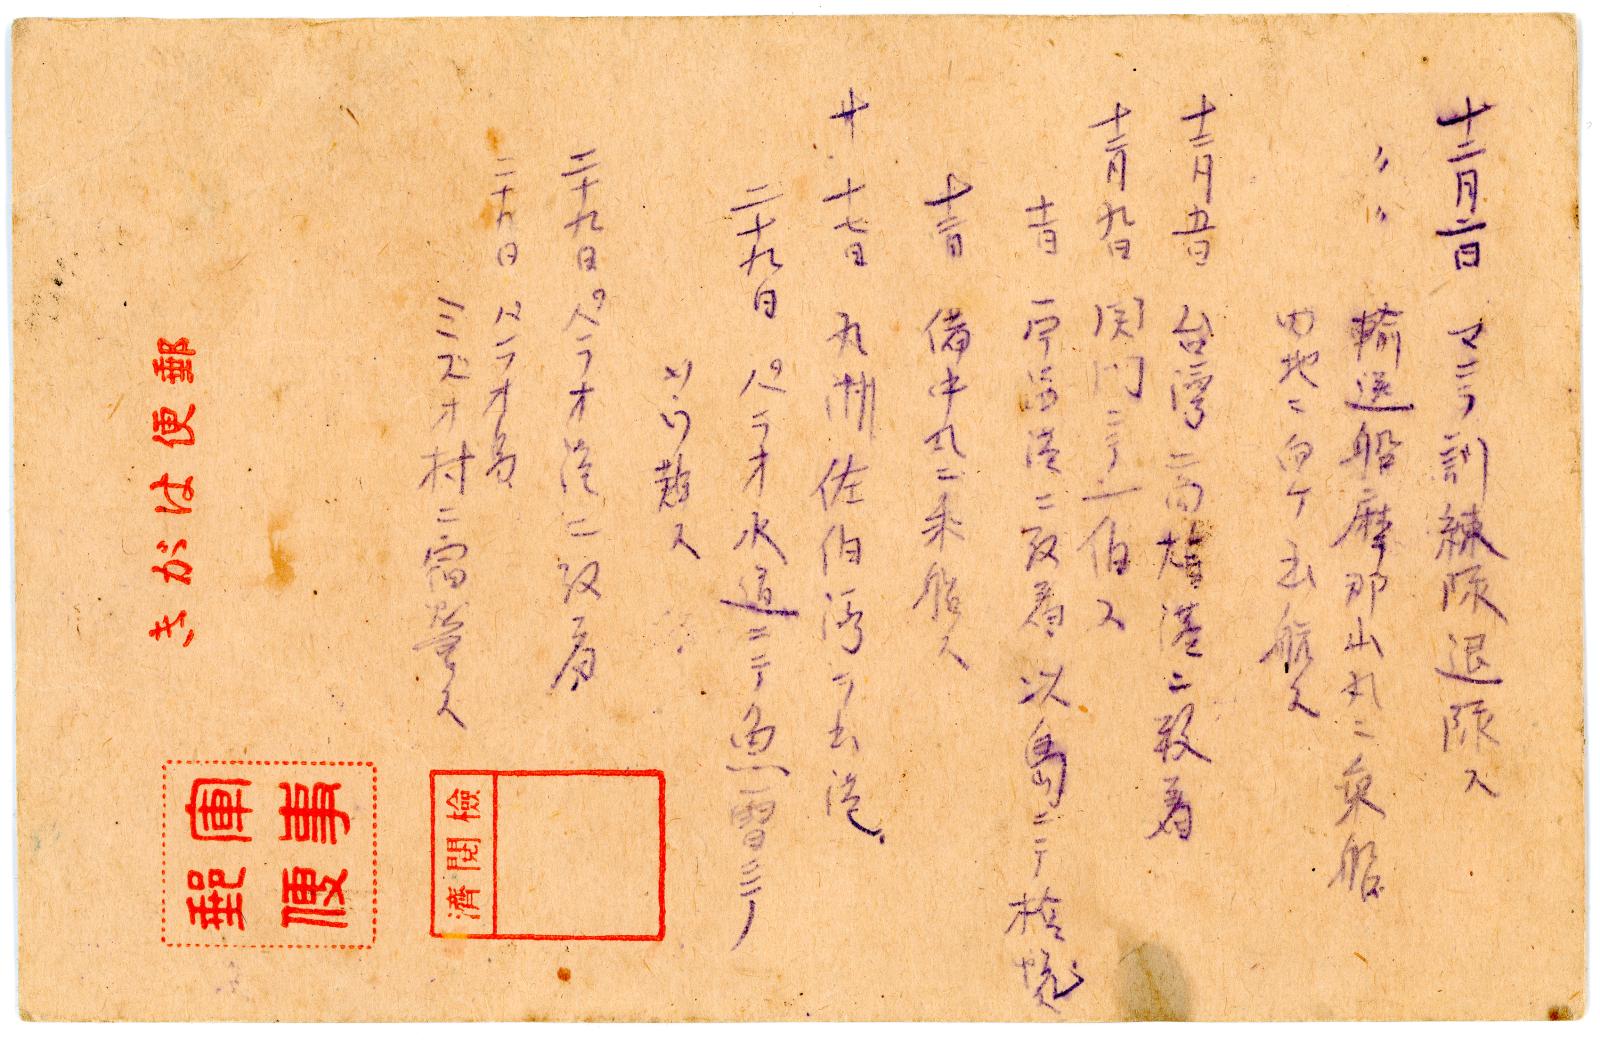 十二月二日 マニラ訓練隊退隊ス
〃 〃 輸送船摩耶山丸ニ乗船
内地ニ向ケ出航ス
十二月五日 台湾ニ高雄港ニ致着
十二月九日 関門ニテ一泊ス
十一日 宇品港ニ致着 以島ニテ検疫
十三日 備中丸ニ乗船ス
廿 十七日 九州佐伯湾ヲ出港
二十九日 パラオ水道ニテ魚雷ニテ
難ス
二十九日 パラオ港ニ致着
二十九日 パラオ島
ミズオ村ニ宿営ス
郵便はがき
軍事
郵便
検閲済